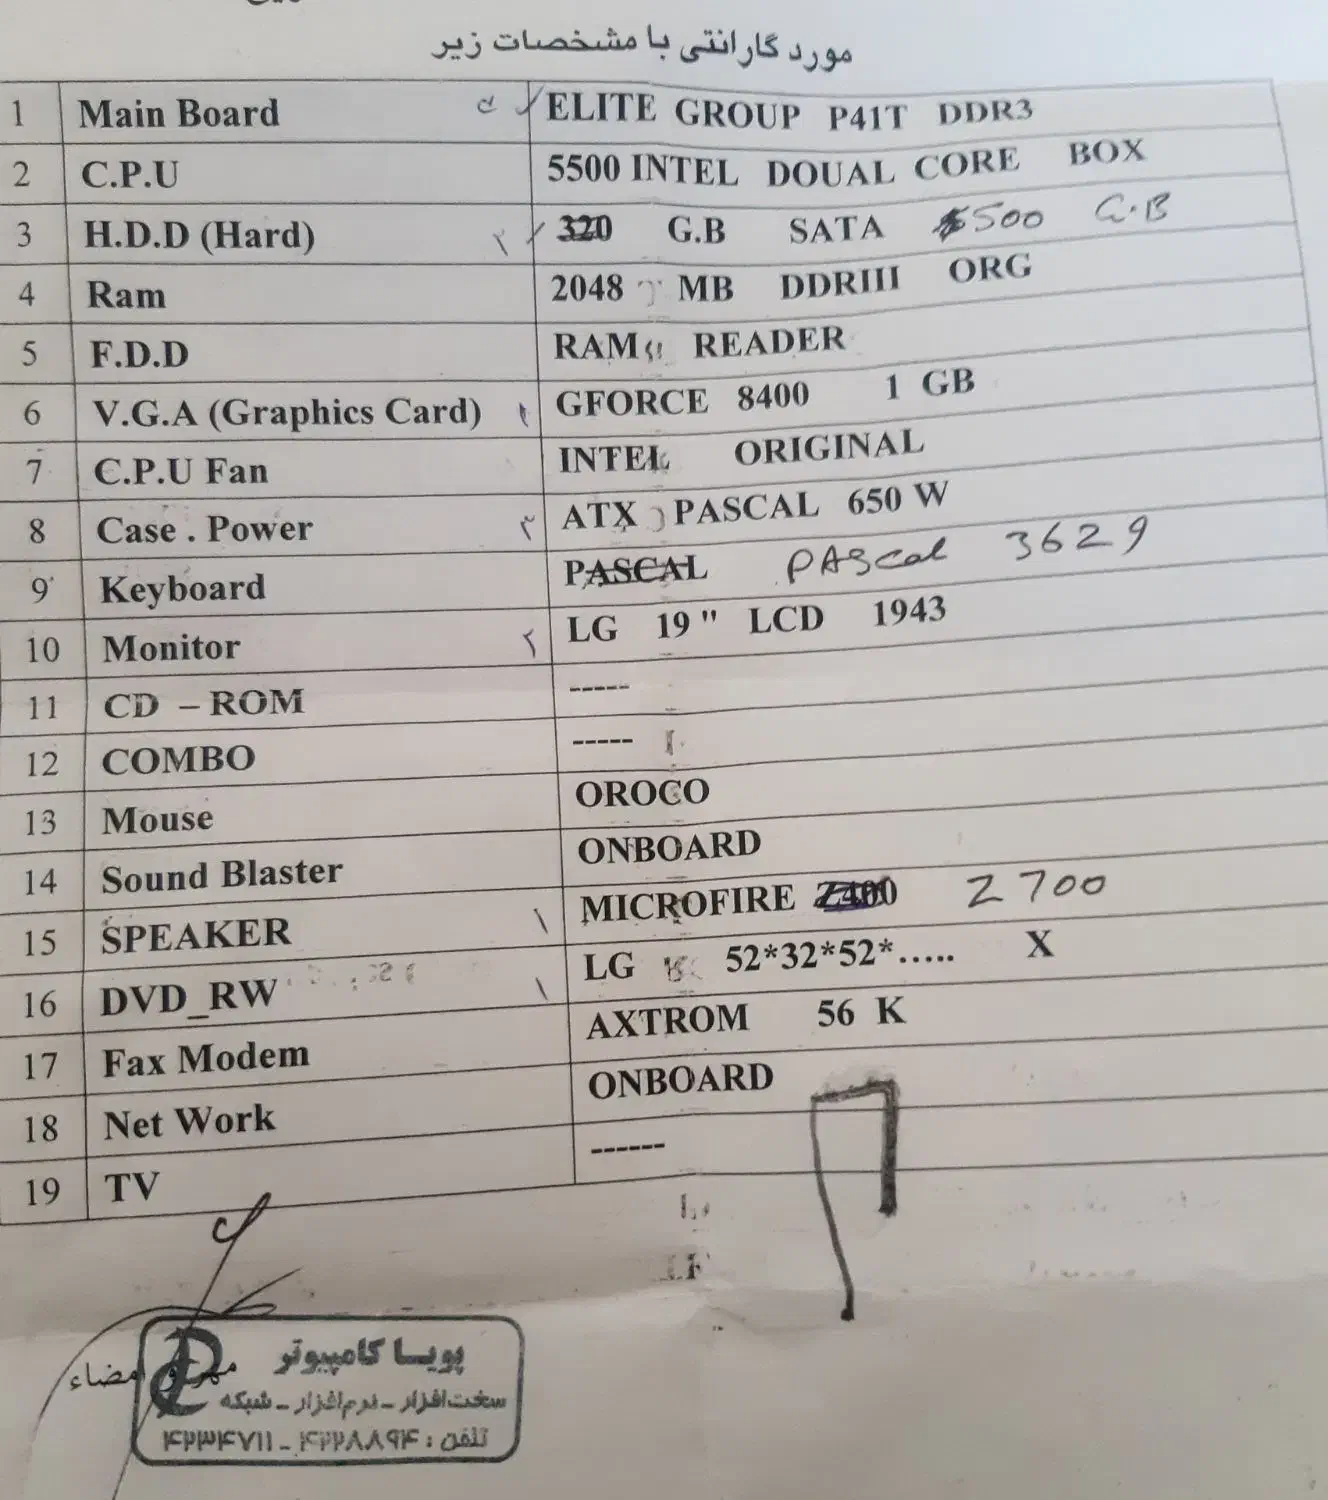 مورد گارانتی با مشخصات زیر
1 Main Board ELITE GROUP P41T DDR3
2 C.P.U 5500 INTEL DOUAL CORE BOX
3 H.D.D (Hard) ۲ 320 G.B SATA 500 G.B
4 Ram 2048 MB DDRIII ORG
5 F.D.D RAM READER
6 V.G.A (Graphics Card) GFORCE 8400 1 GB
7 C.P.U Fan INTEL ORIGINAL
8 Case . Power ۳ ATX PASCAL 650 W
9 Keyboard PASCAL PAScal 3629
10 Monitor ۲ LG 19" LCD 1943
11 CD – ROM -----
12 COMBO -----
13 Mouse OROCO
14 Sound Blaster ONBOARD
15 SPEAKER ۱ MICROFIRE Z400 Z700
16 DVD_RW ۱ LG 52*32*52*..... X
17 Fax Modem AXTROM 56 K
18 Net Work ONBOARD
19 TV ------
پویسا کامپیوتر
مهر و امضاء
سخت‌افزار ـ نرم‌افزار ـ شبکه
تلفن : ۴۲۲۸۸۹۴ - ۴۲۳۴۷۱۱